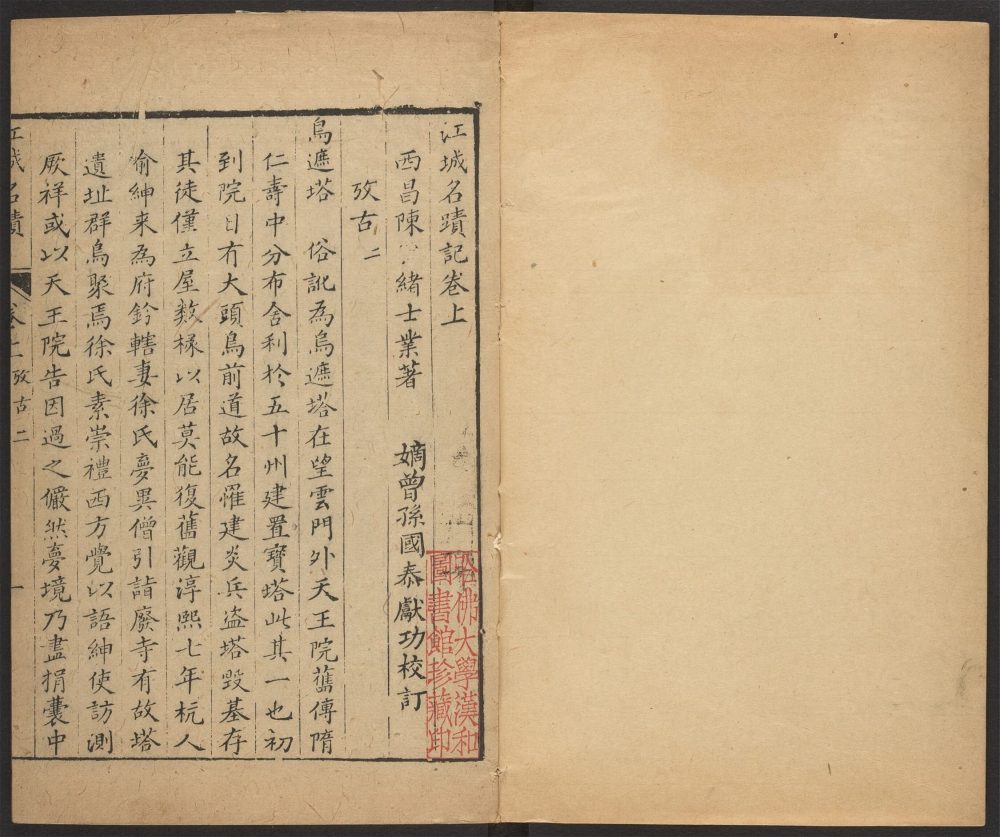 江城名蹟記卷上
西昌陳 緒士業著 嫡曾孫國泰獻功校訂
攷古二
鳥遮塔 俗訛為烏遮塔在望雲門外天王院舊傳隋
仁壽中分布舍利於五十州建置寳塔此其一也初
到院日有大頭鳥前道故名罹建炎兵盗塔毀基存
其徒僅立屋数椽以居莫能復舊觀淳熙七年杭人
俞紳来為府鈐轄妻徐氏夢異僧引詣廢寺有故塔
遺址群鳥聚焉徐氏素崇禮西方覺以語紳使訪測
厥祥或以天王院告因過之儼然夢境乃盡捐囊中
江城名蹟 卷二攷古二 一
哈佛大學漢和
圖書館珍藏印